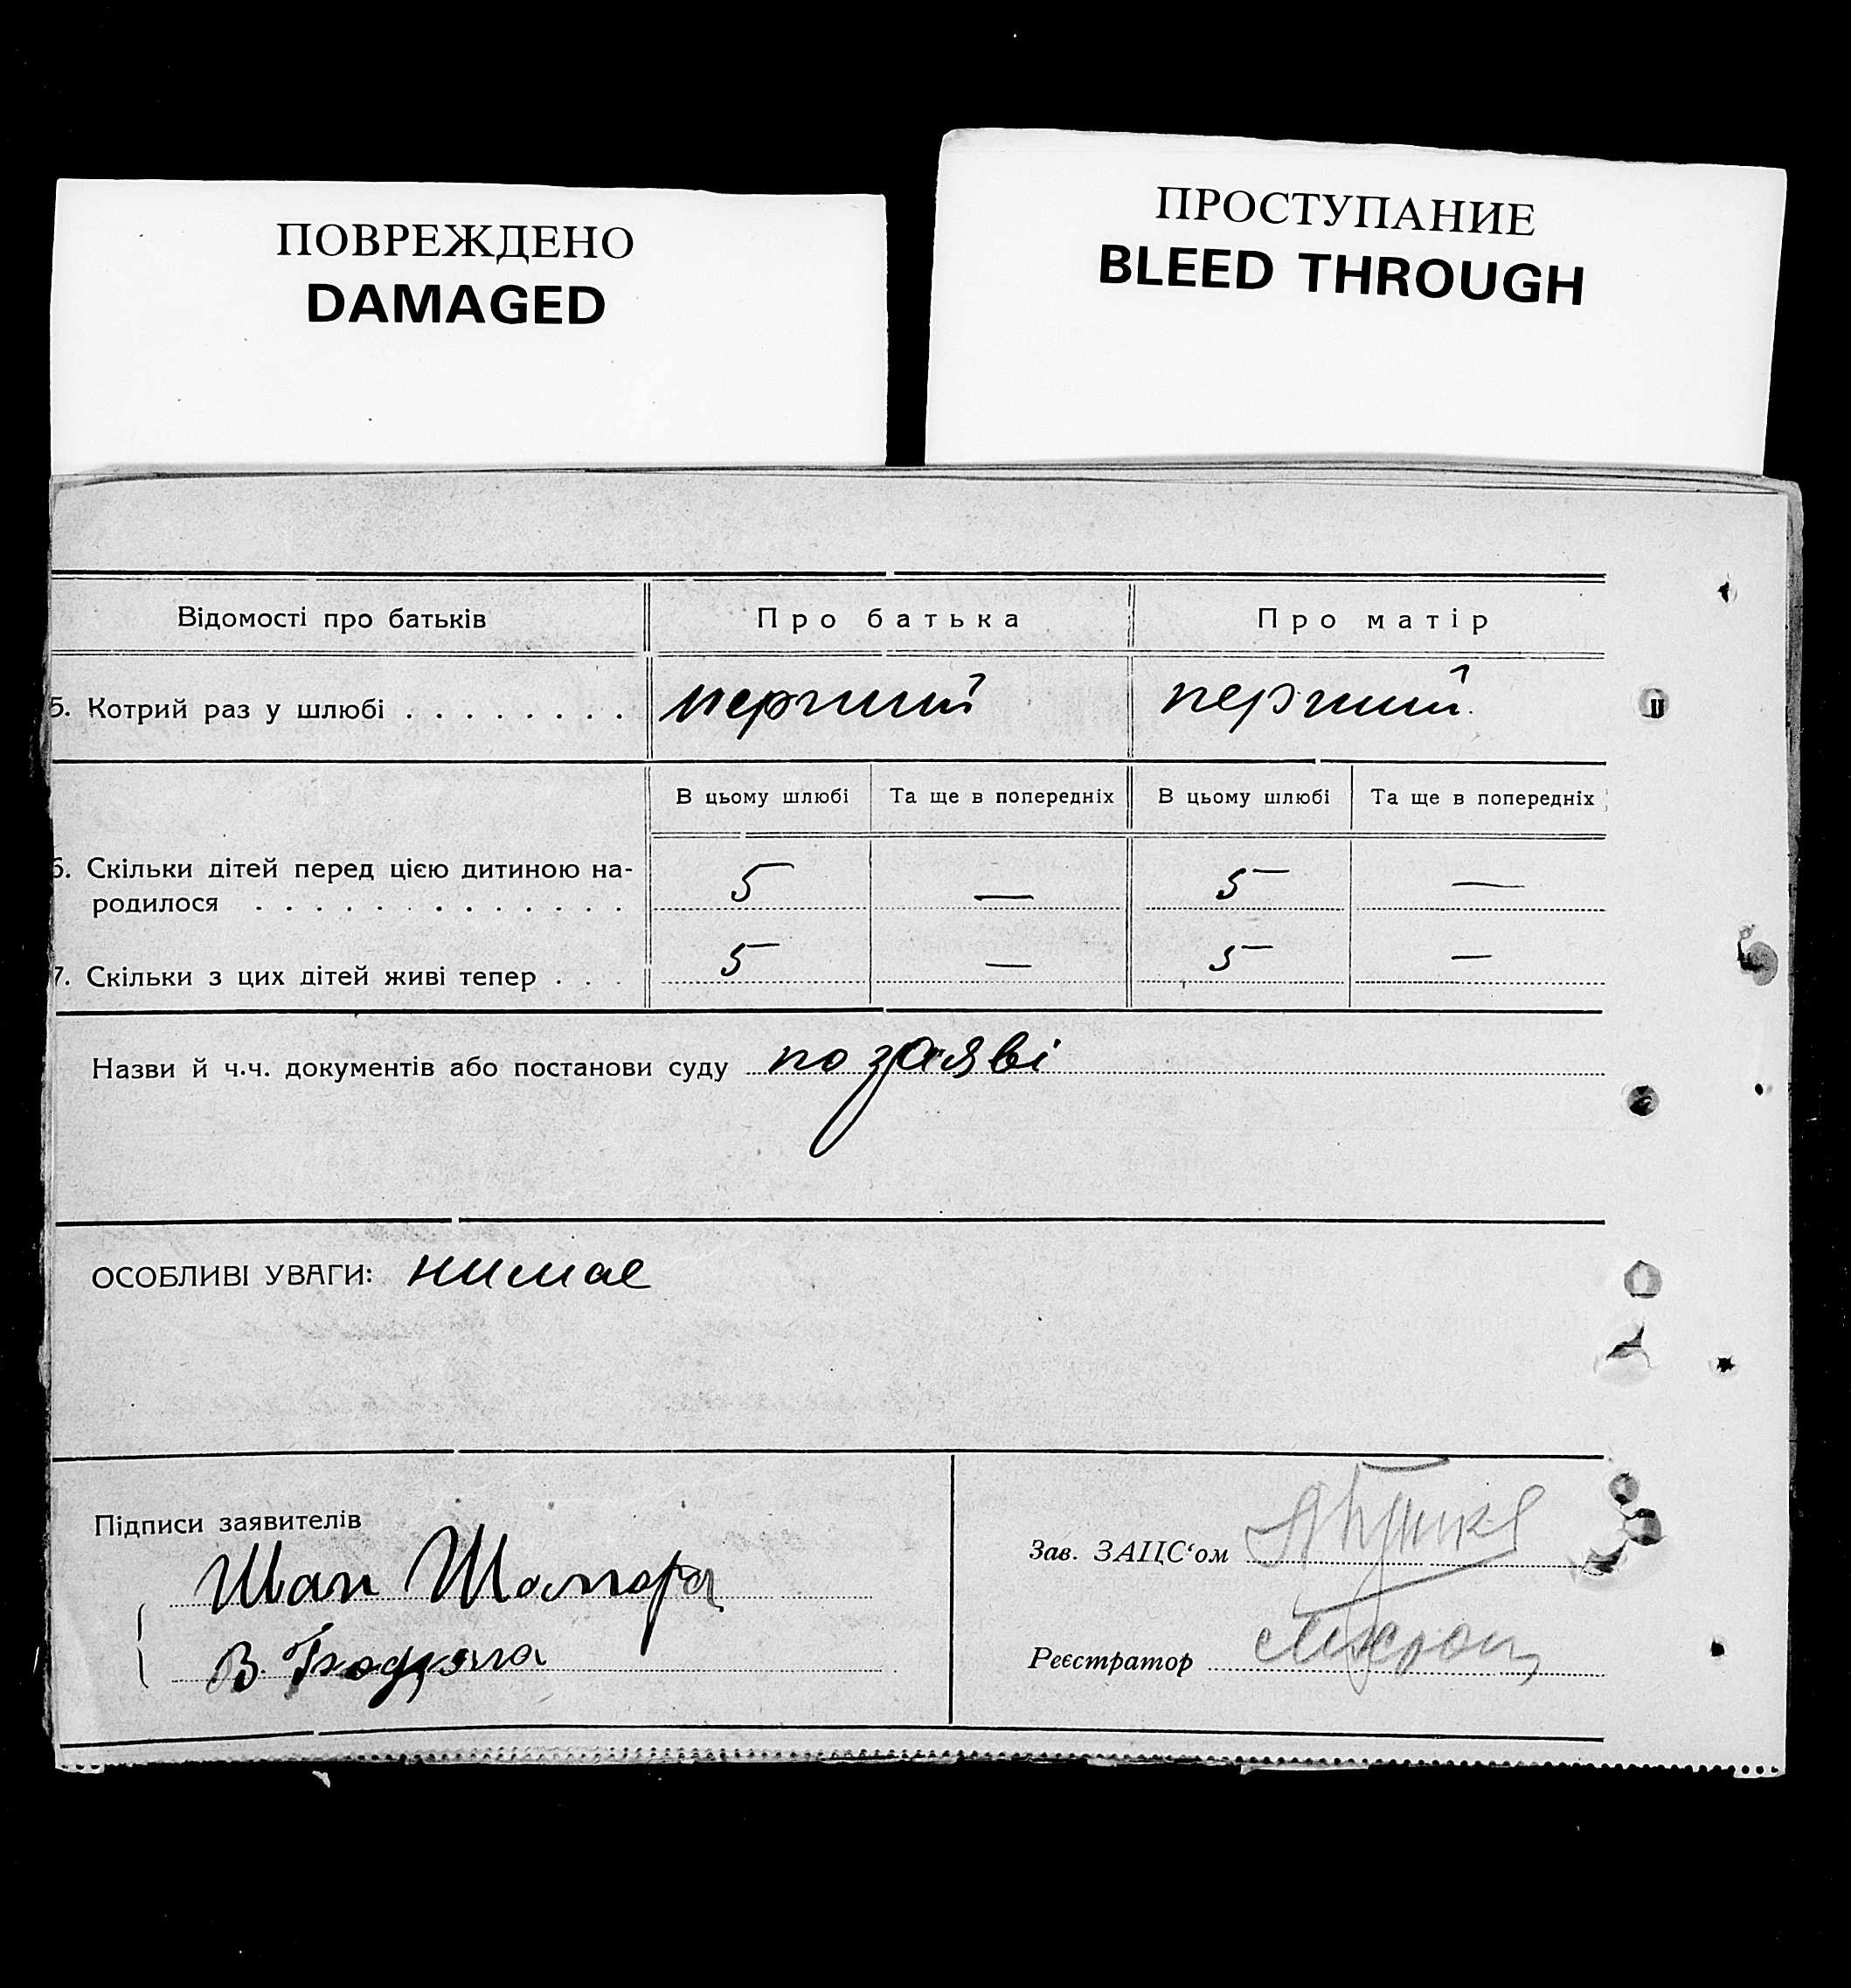 ПОВРЕЖДЕНО
DAMAGED
ПРОСТУПАНИЕ
BLEED THROUGH
Відомості про батьків
Про батька
Про матір
5. Котрий раз у шлюбі . . . . . . . .
перший
перший.
В цьому шлюбі
Та ще в попередніх
В цьому шлюбі
Та ще в попередніх
6. Скільки дітей перед цією дитиною на-
родилося . . . . . . . . . . . . .
5
—
5
—
7. Скільки з цих дітей живі тепер . . .
5
—
5
—
Назви й ч.ч. документів або постанови суду по заяві
ОСОБЛИВІ УВАГИ: нимає
Підписи заявителів
В.
Зав. ЗАЦС‘ом
Реєстратор